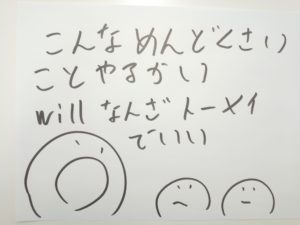 こんなめんどくさい
ことやるかい
will なんざ トーメイ
でいい